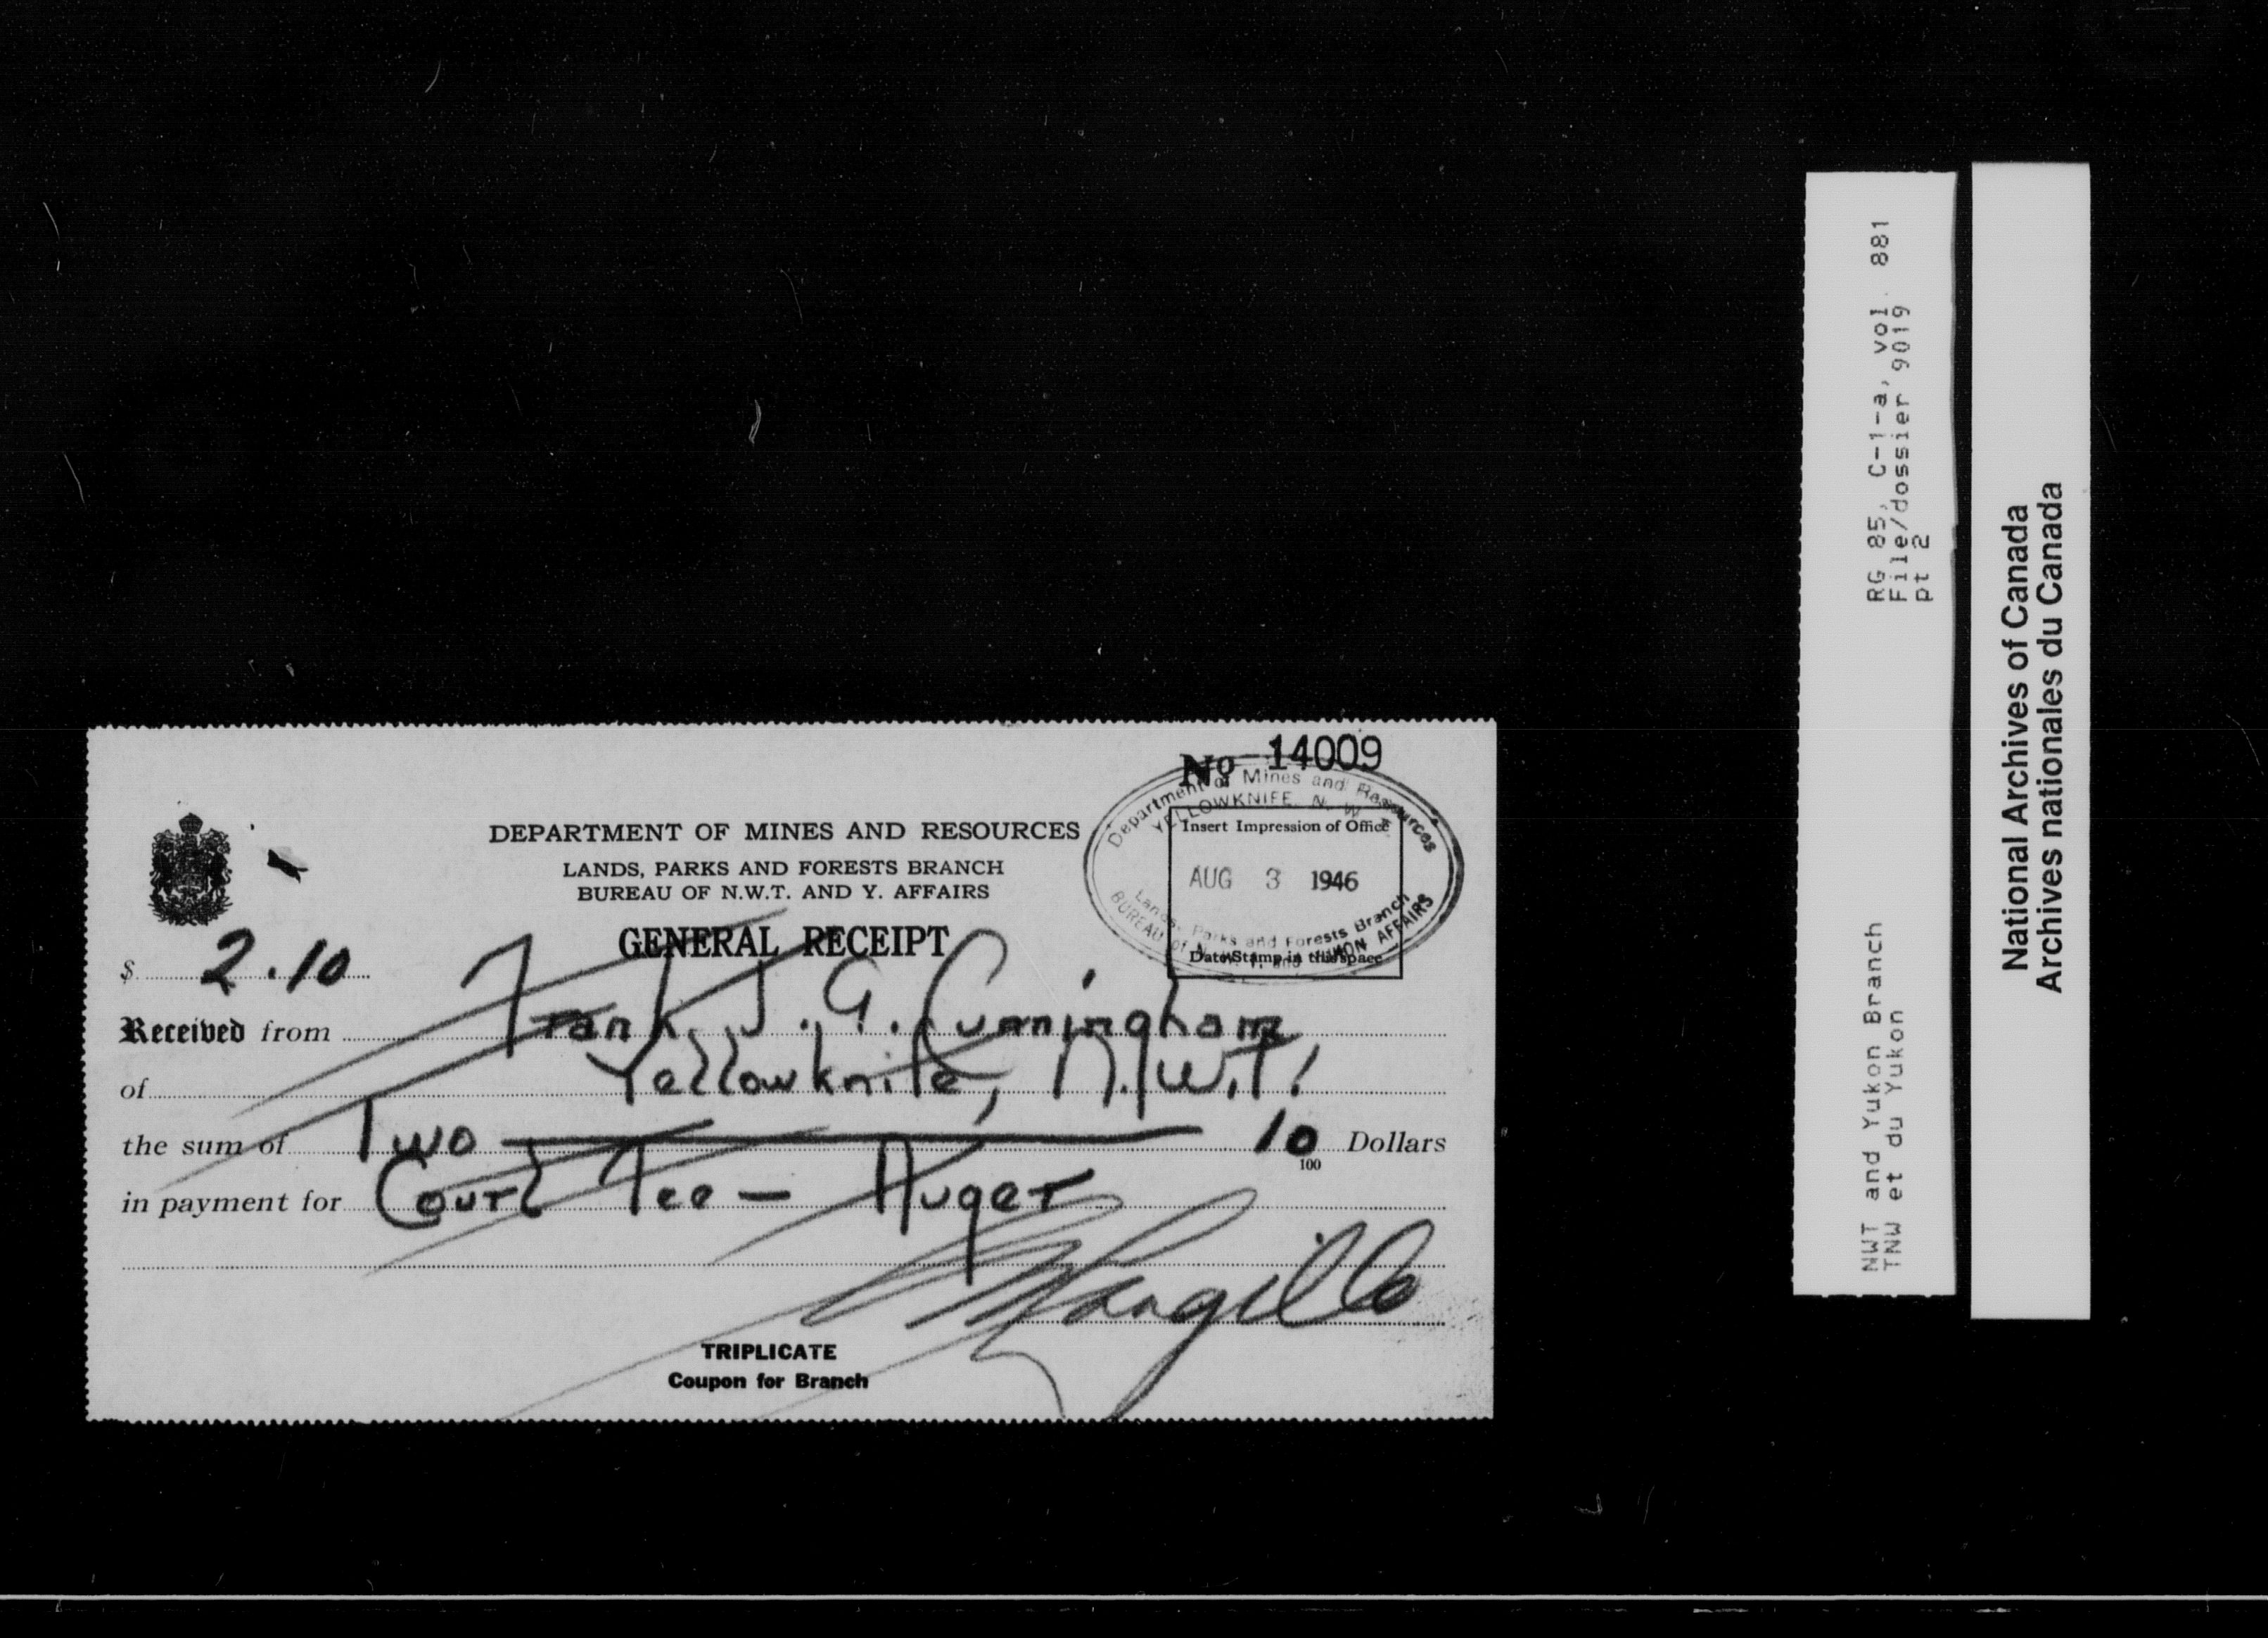 Nº 14009
Department of Mines and Resources
YELLOWKNIFE, N. W. T.
Insert Impression of Office
AUG 3 1946
Lands, Parks and Forests Branch
BUREAU of N.W.T. and YUKON AFFAIRS
Date Stamp in this space
DEPARTMENT OF MINES AND RESOURCES
LANDS, PARKS AND FORESTS BRANCH
BUREAU OF N.W.T. AND Y. AFFAIRS
GENERAL RECEIPT
$ 2.10
Received from Frank J. G. Cunningham
of Yellowknife, N.W.T.
the sum of Two 10/100 Dollars
in payment for Court Fee — Auger
TRIPLICATE
Coupon for Branch
NWT and Yukon Branch RG 85, C-1-a, vol. 881
TNW et du Yukon File/dossier 9019
pt 2
National Archives of Canada
Archives nationales du Canada